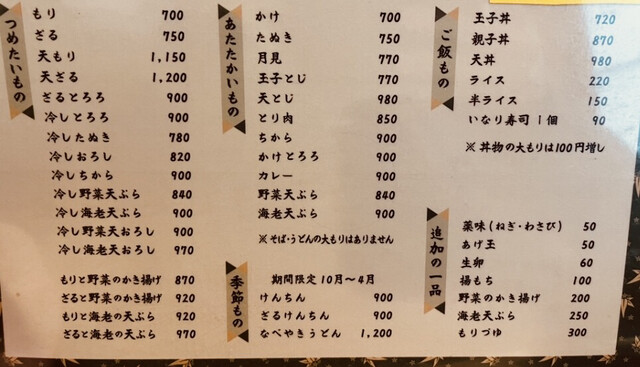 つめたいもの
もり 700
ざる 750
天もり 1,150
天ざる 1,200
ざるとろろ 900
冷しとろろ 900
冷したぬき 780
冷しおろし 820
冷しちから 900
冷し野菜天ぷら 840
冷し海老天ぷら 900
冷し野菜天おろし 900
冷し海老天おろし 970
もりと野菜のかき揚げ 870
ざると野菜のかき揚げ 920
もりと海老の天ぷら 920
ざると海老の天ぷら 970
あたたかいもの
かけ 700
たぬき 750
月見 770
玉子とじ 770
天とじ 980
とり肉 850
ちから 900
かけとろろ 900
カレー 900
野菜天ぷら 840
海老天ぷら 900
※そば・うどんの大もりはありません
季節もの
期間限定10月〜4月
けんちん 900
ざるけんちん 900
なべやきうどん 1,200
ご飯もの
玉子丼 720
親子丼 870
天丼 980
ライス 220
半ライス 150
いなり寿司 1個 90
※丼物の大もりは100円増し
追加の一品
薬味(ねぎ・わさび) 50
あげ玉 50
生卵 60
揚もち 100
野菜のかき揚げ 200
海老天ぷら 250
もりづゆ 300